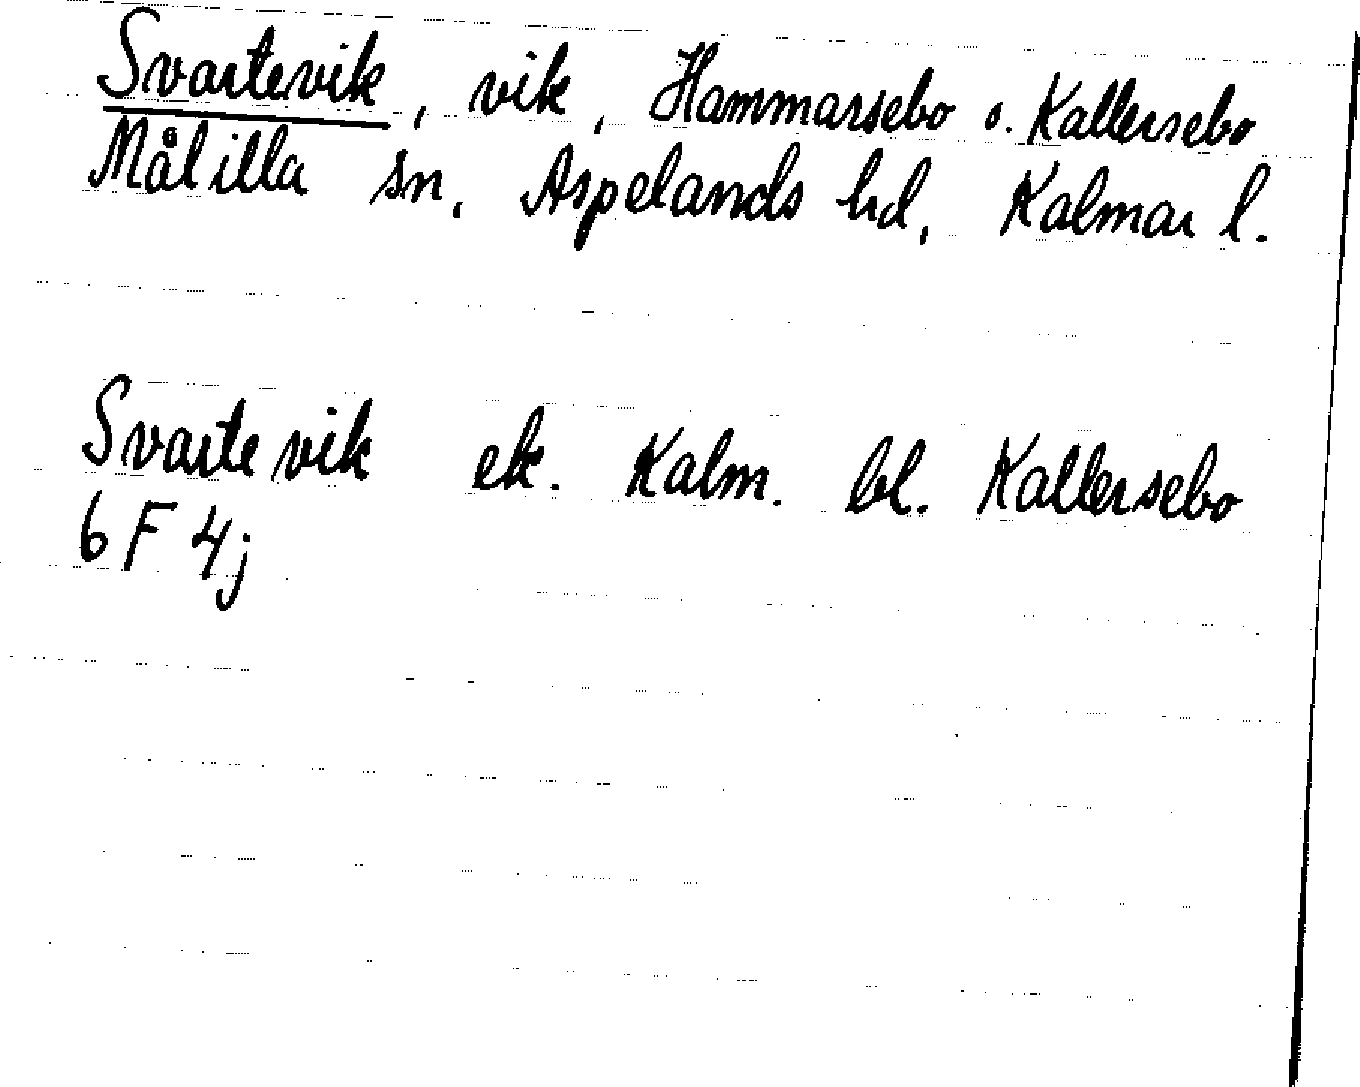 Svartevik, vik, Hammarsebo o. Kallersebo
Målilla sn, Aspelands hd, Kalmar l.
Svartevik ek. Kalm. bl. Kallersebo
6F 4j